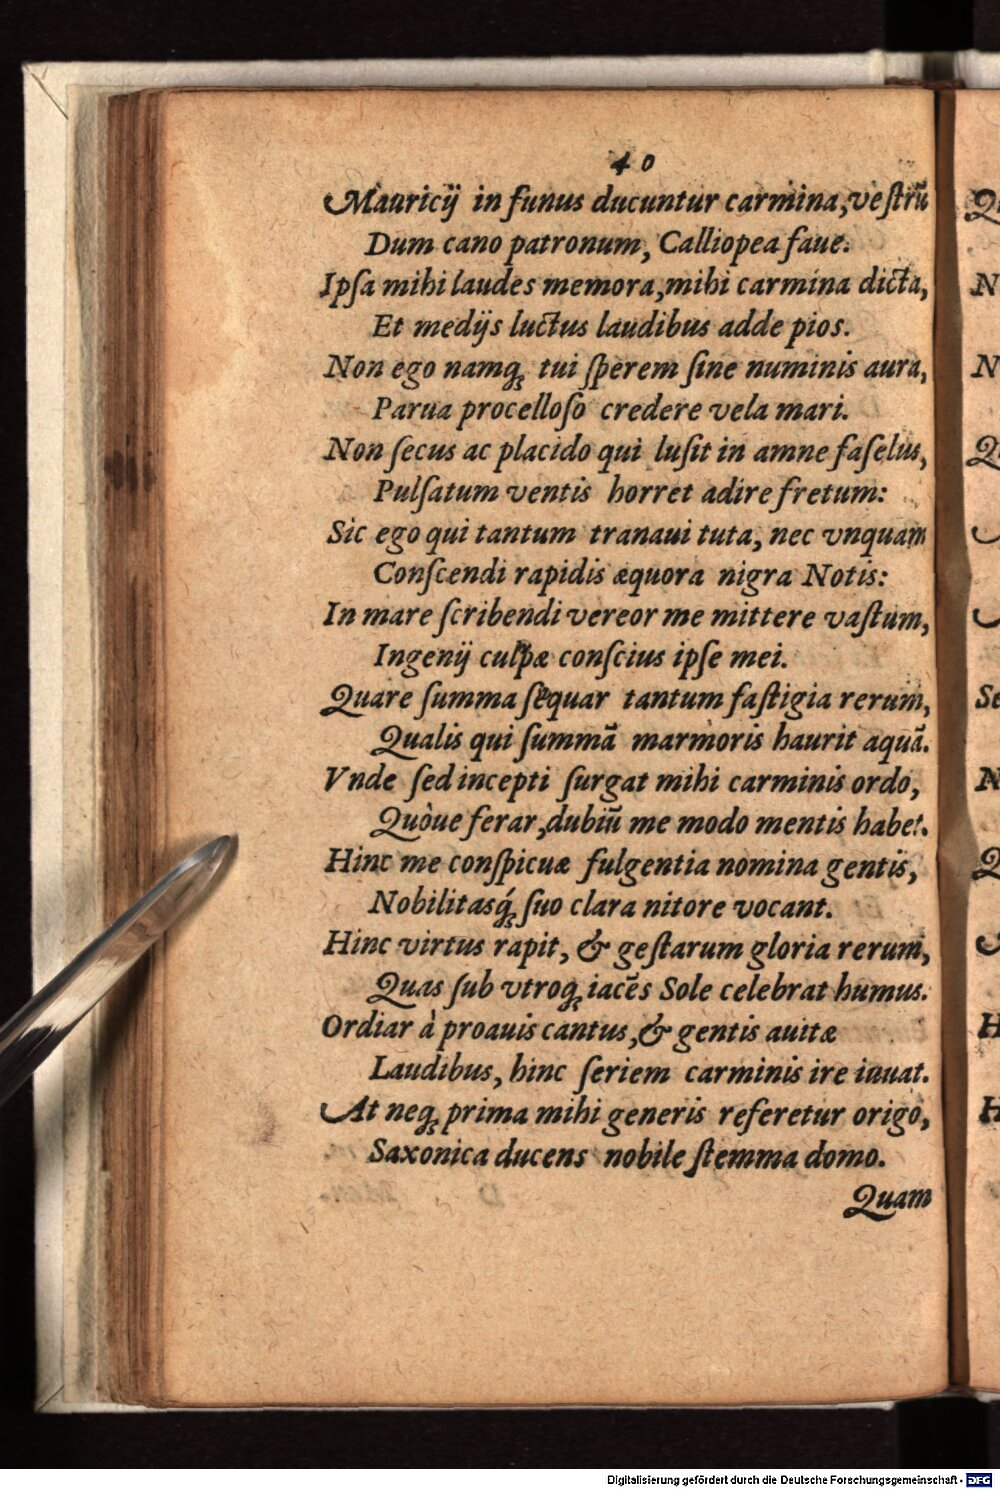 40
Mauricij in funus ducuntur carmina, veſtrũ
Dum cano patronum, Calliopea faue.
Ipſa mihi laudes memora, mihi carmina dicta,
Et medijs luctus laudibus adde pios.
Non ego namq́; tui ſperem ſine numinis aura,
Parua procelloſo credere vela mari.
Non ſecus ac placido qui luſit in amne faſelus,
Pulſatum ventis horret adire fretum:
Sic ego qui tantum tranaui tuta, nec vnquam
Conſcendi rapidis æquora nigra Notis:
In mare ſcribendi vereor me mittere vaſtum,
Ingenij culpæ conſcius ipſe mei.
Quare ſumma ſequar tantum faſtigia rerum,
Qualis qui ſummã marmoris haurit aquã.
Vnde ſed incepti ſurgat mihi carminis ordo,
Quòue ferar, dubiũ me modo mentis habet.
Hinc me conſpicuæ fulgentia nomina gentis,
Nobilitasq́; ſuo clara nitore vocant.
Hinc virtus rapit, & geſtarum gloria rerum,
Quas ſub vtroq; iacẽs Sole celebrat humus.
Ordiar à proauis cantus, & gentis auitæ
Laudibus, hinc ſeriem carminis ire iuuat.
At neq; prima mihi generis referetur origo,
Saxonica ducens nobile ſtemma domo.
Quam
Digitalisierung gefördert durch die Deutsche Forschungsgemeinschaft - DFG